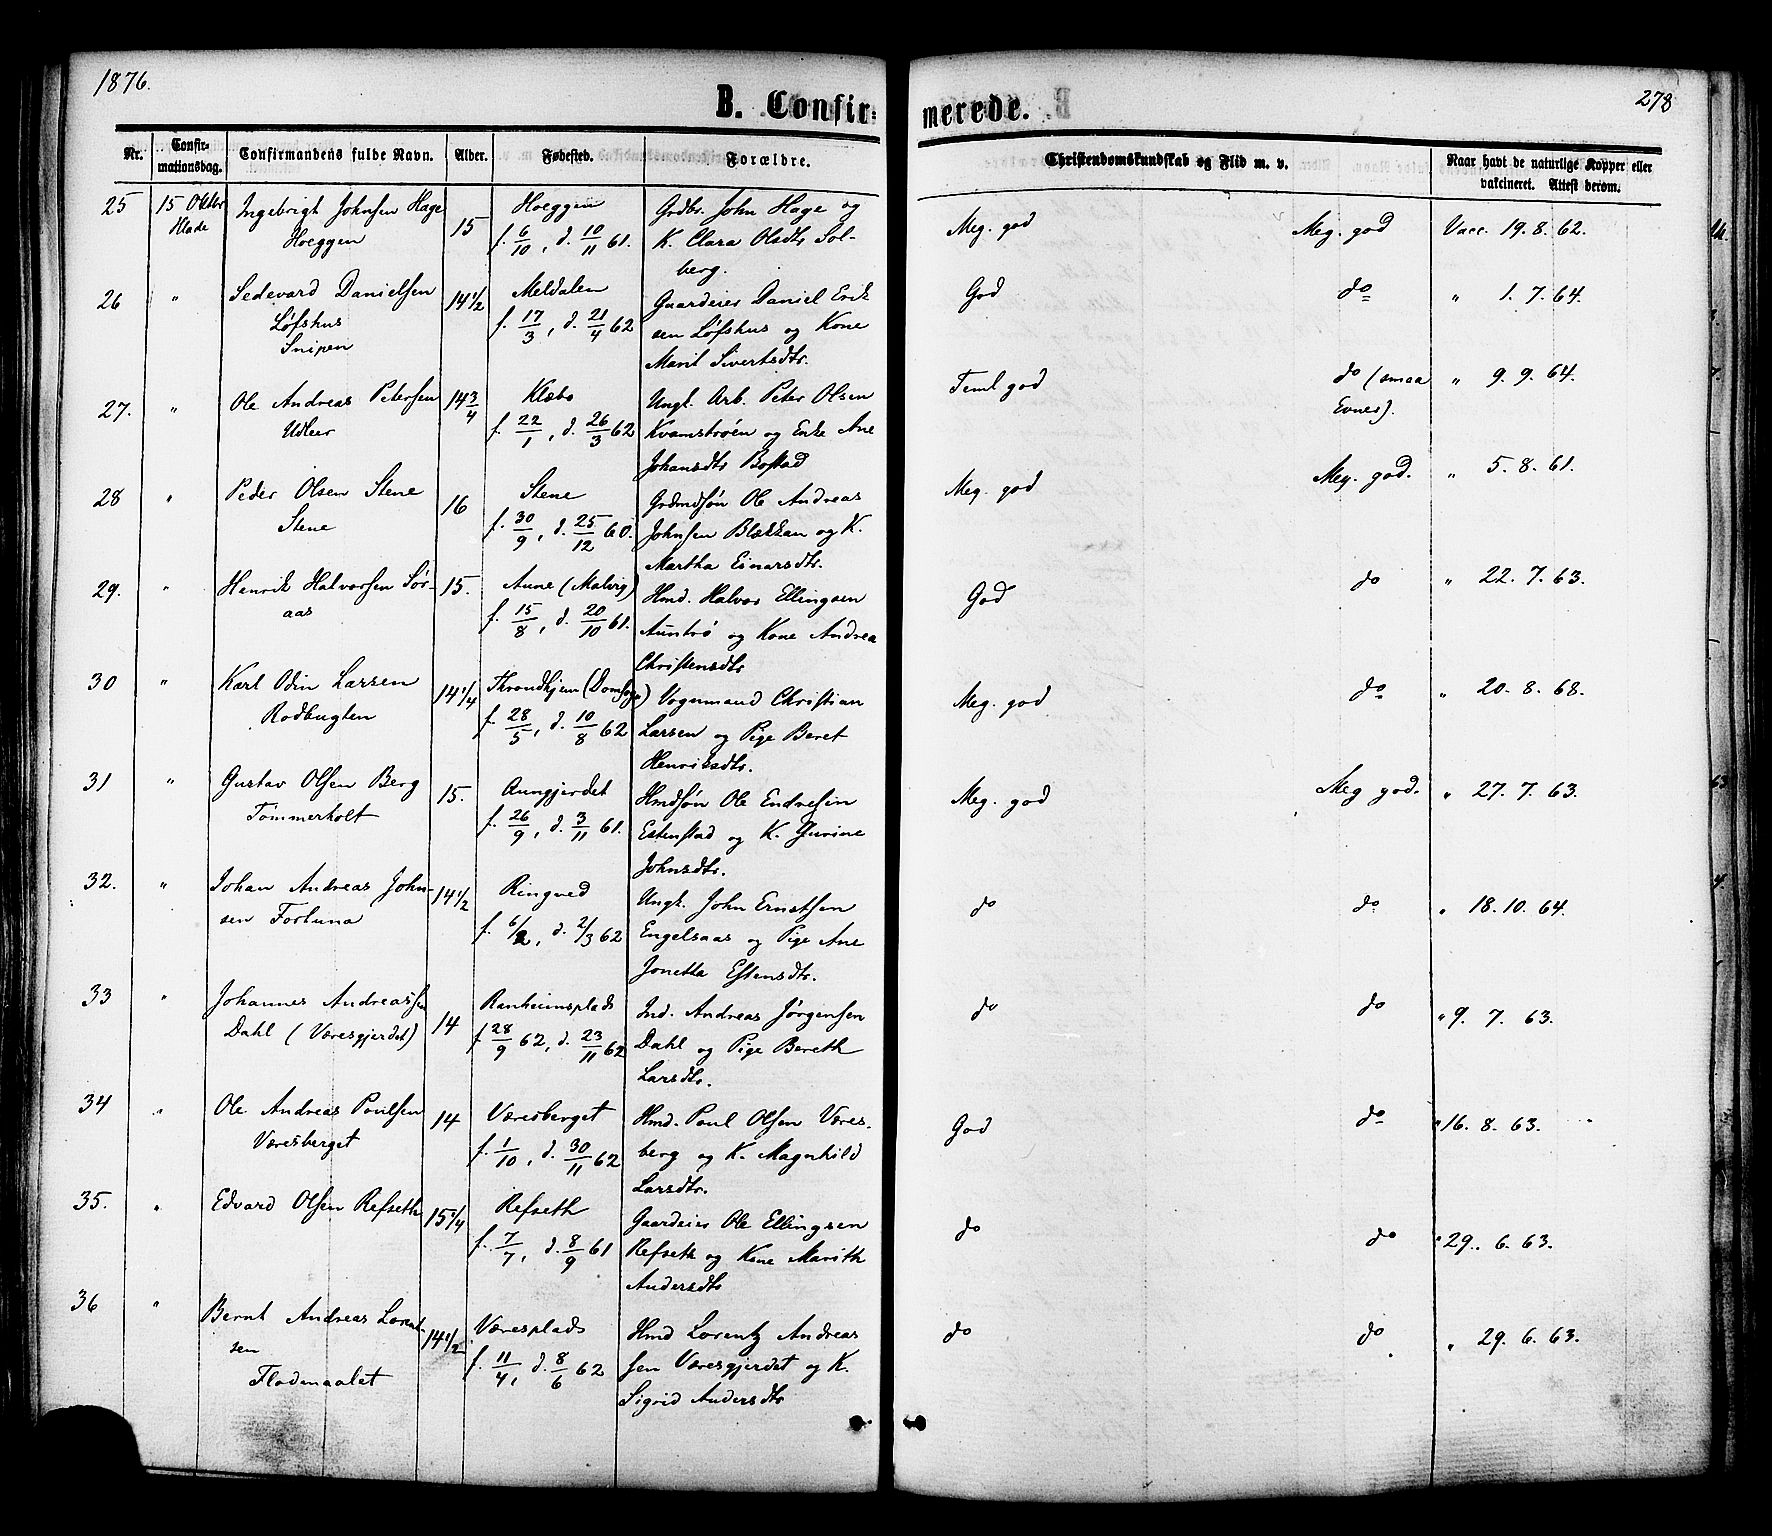 1876.
278
B. Confirmerede.
Nr. Confirmationsdag. Confirmandens fulde Navn. Alder. Fødested. Forældre. Christendomskundskab og Flid m. v. Naar havt de naturlige Kopper eller vakcineret. Attest derom.
25 15 Oktbr Hlade Ingebrigt Johnsen Hage Hoeggen 15 Hoeggen
f. 6/10, d. 10/11 61.
Grdbr. John Hage og
K. Clara Olsdtr Sol-
berg.
Meg. god Meg. god Vacc. 19. 8. 62.
26 " Sedevard Danielsen
Løfshus
Snipen
14 1/2 Meldalen
f. 17/3, d. 21/4 62
Gaardeier Daniel Erik
sen Løfshus og Kone
Marit Sivertsdtr.
God do " 1. 7. 64.
27. " Ole Andreas Petersen
Udleer
14 3/4 Klæbo
f. 22/1, d. 26/3 62
Ungk. Arb. Peter Olsen
Kvamstrøen og Enke Ane
Johansdtr Bostad
Teml god do (smaa
Evner).
" 9. 9. 64.
28 " Peder Olsen Stene
Stene
16 Stene
f. 30/9, d. 25/12 60.
Grdmdsøn Ole Andreas
Johnsen Blekkan og K.
Martha Einarsdtr.
Meg. god Meg. god. " 5. 8. 61.
29. " Henrik Halvorsen Sør-
aas
15. Aune (Malvig)
f. 15/8, d. 20/10 61.
Hmd. Halvor Ellingsen
Auntrø og Kone Andrea
Christensdtr
God do " 22. 7. 63.
30 " Karl Odin Larsen
Rodbugten
14 1/4 Throndhjem (Domsogn)
f. 28/5, d. 10/8 62
Vognmand Christian
Larsen og Pige Beret
Henriksdtr.
Meg. god do " 20. 8. 68.
31 " Gustav Olsen Berg
Tømmerholt
15. Aungjerdet
f. 26/9, d. 3/11 61.
Hmdsøn Ole Endresen
Estenstad og K. Gurine
Johnsdtr.
Meg. god Meg god. " 27. 7. 63.
32. " Johan Andreas John-
sen Fortuna
14 1/2 Ringved
f. 6/2, d. 2/3 62
Ungk. John Erntsen
Engelsaas og Pige Ane
Jonetta Estensdtr.
do do " 18. 10. 64.
33 " Johannes Andreassen
Dahl (Væresgjerdet)
14 Ranheimsplads
f 28/9 62, d. 23/11 62
Ind. Andreas Jørgensen
Dahl og Pige Bereth
Larsdtr.
do do " 9. 7. 63.
34 " Ole Andreas Poulsen
Væresberget
14 Væresberget
f. 1/10, d. 30/11 62
Hmd. Poul Olsen Væres-
berg og K. Magnhild
Larsdtr.
God do " 16. 8. 63.
35. " Edvard Olsen Refseth
15 1/4 Refseth
f. 7/7, d. 8/9 61
Gaardeier Ole Ellingsen
Refseth og Kone Marith
Andersdtr
do do " 29. 6. 63.
36 " Bernt Andreas Lorent-
sen
Flodmaalet
14 1/2 Væresplads
f. 11/4, d. 8/6 62
Hmd Lorentz Andreas
sen Væresgjerdet og K.
Sigrid Andersdtr
do do " 29. 6. 63.